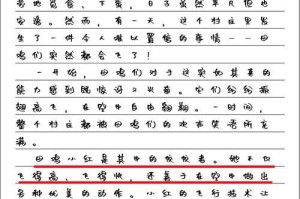 劳地觅食、下蛋，日子虽然平凡但也
安逸。然而，有一天，这个村庄里发
生了一件令人难以置信的事情——田
鸡们突然都会飞了！
一开始，田鸡们对于这突如其来的
能力感到既惊讶又兴奋。它们纷纷振
翅高飞，在空中自由翱翔。一时间，
整个村庄都被田鸡们的欢声笑语所充
满。
田鸡小红是其中的佼佼者。她不仅
飞得高、飞得快，还善于在空中做出
各种优美的动作。小红的飞行技术让